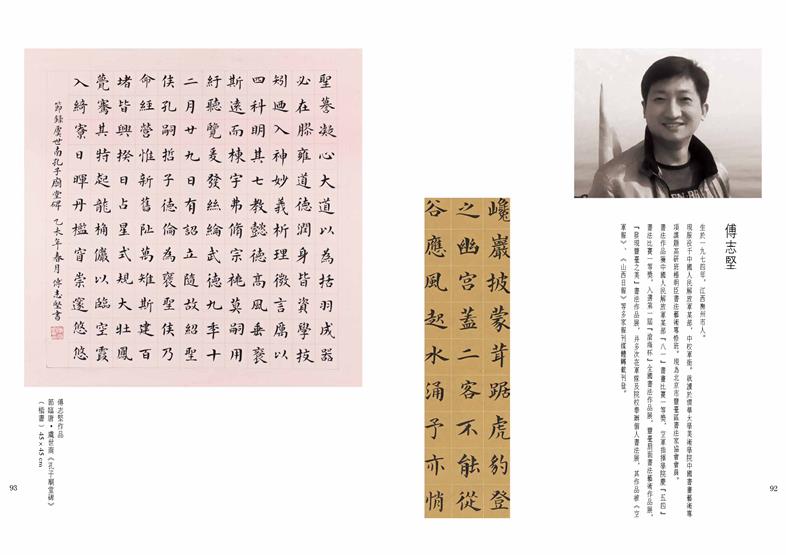 傅志堅
生於一九七四年，江西撫州市人。
現服役于中國人民解放軍某部，中校軍銜。就讀於清華大學美術學院中國書畫藝術專
項課題高研班楊明臣書法藝術專修班。現為北京市豐臺區書法家協會會員。
書法作品獲中國人民解放軍某部『八一』書畫比賽一等獎，空軍指揮學院慶『五四』
書法比賽一等獎，入選第一屆『滄海杯』全國書法作品展、豐臺扇面書法藝術作品展、
『發現豐臺之美』書法作品展，并多次在軍隊及院校舉辦個人書法展，其作品被《空
軍報》、《山西日報》等多家報刊媒體轉載刊登。
92
巉巖披蒙茸踞虎豹登
之幽宮蓋二客不能從
谷應風起水涌予亦悄
聖摹凝心大道以為括羽成器
必在膠雍道德潤身皆資學技
矧迺入神妙義析理微言厲以
四科明其七教懿德高風垂裒
斯遠而棟宇弗脩宗祧莫嗣用
紆聽覽爰發絲綸武德九年十
二月廿九日有詔立隨故紹聖
侯孔嗣哲子德倫為褒聖侯乃
命經營惟新舊阯萬雉斯建百
堵皆興揆日占星式規大壯鳳
甍鶱其特起龍桷儼以臨空霞
入綺寮日暉丹檻窅崇邃悠悠
節錄虞世南孔子廟堂碑 乙未年春月傅志堅書
傅志堅作品
節臨唐·虞世南《孔子廟堂碑》
（楷書）45×45 cm
93